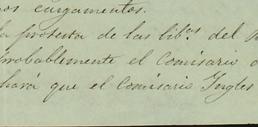 os cargamentos.
la protesta de las lib.as del
probablemente el Comisario
hará que el Comisario Ingles